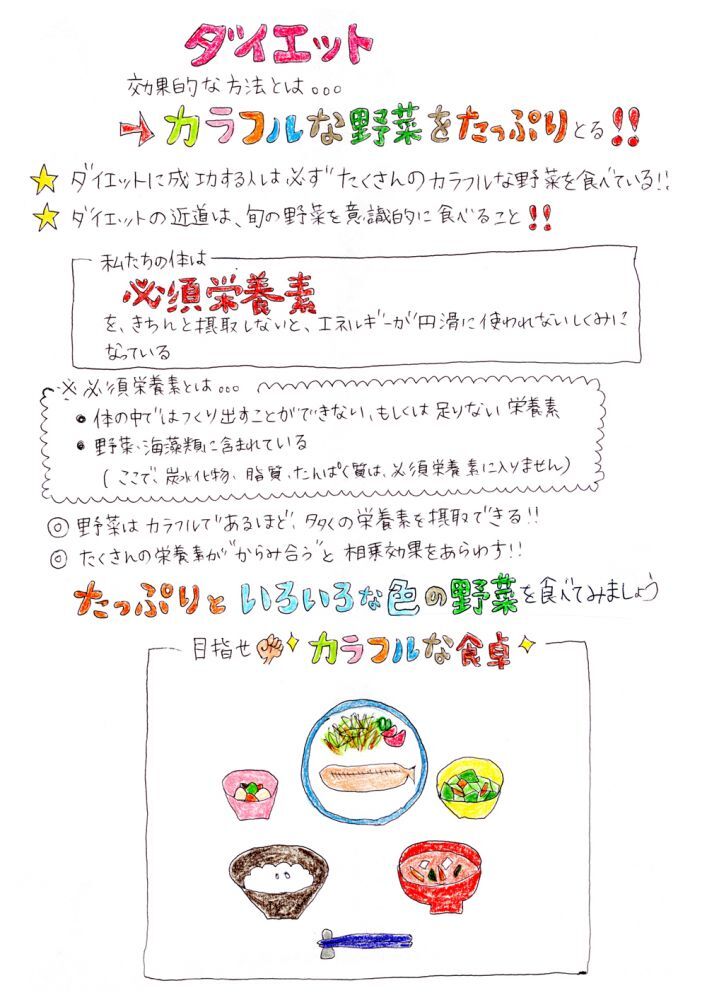 ダイエット
効果的な方法とは。。。
→カラフルな野菜をたっぷりとる!!
☆ ダイエットに成功する人は必ず"たくさんのカラフルな野菜を食べている!!
☆ ダイエットの近道は、旬の野菜を意識的に食べること!!
私たちの体は
必須栄養素
を、きちんと摂取しないと、エネルギーが円滑に使われないしくみに
なっている
※必須栄養素とは。。。
● 体の中ではつくり出すことができない、もしくは足りない栄養素
● 野菜・海藻類に含まれている
(ここで、炭水化物、脂質、たんぱく質は、必須栄養素に入りません)
◎ 野菜はカラフルであるほど、多くの栄養素を摂取できる!!
◎ たくさんの栄養素が"からみ合う"と相乗効果をあらわす!!
たっぷりといろいろな色の野菜を食べてみましょう
目指せ カラフルな食卓